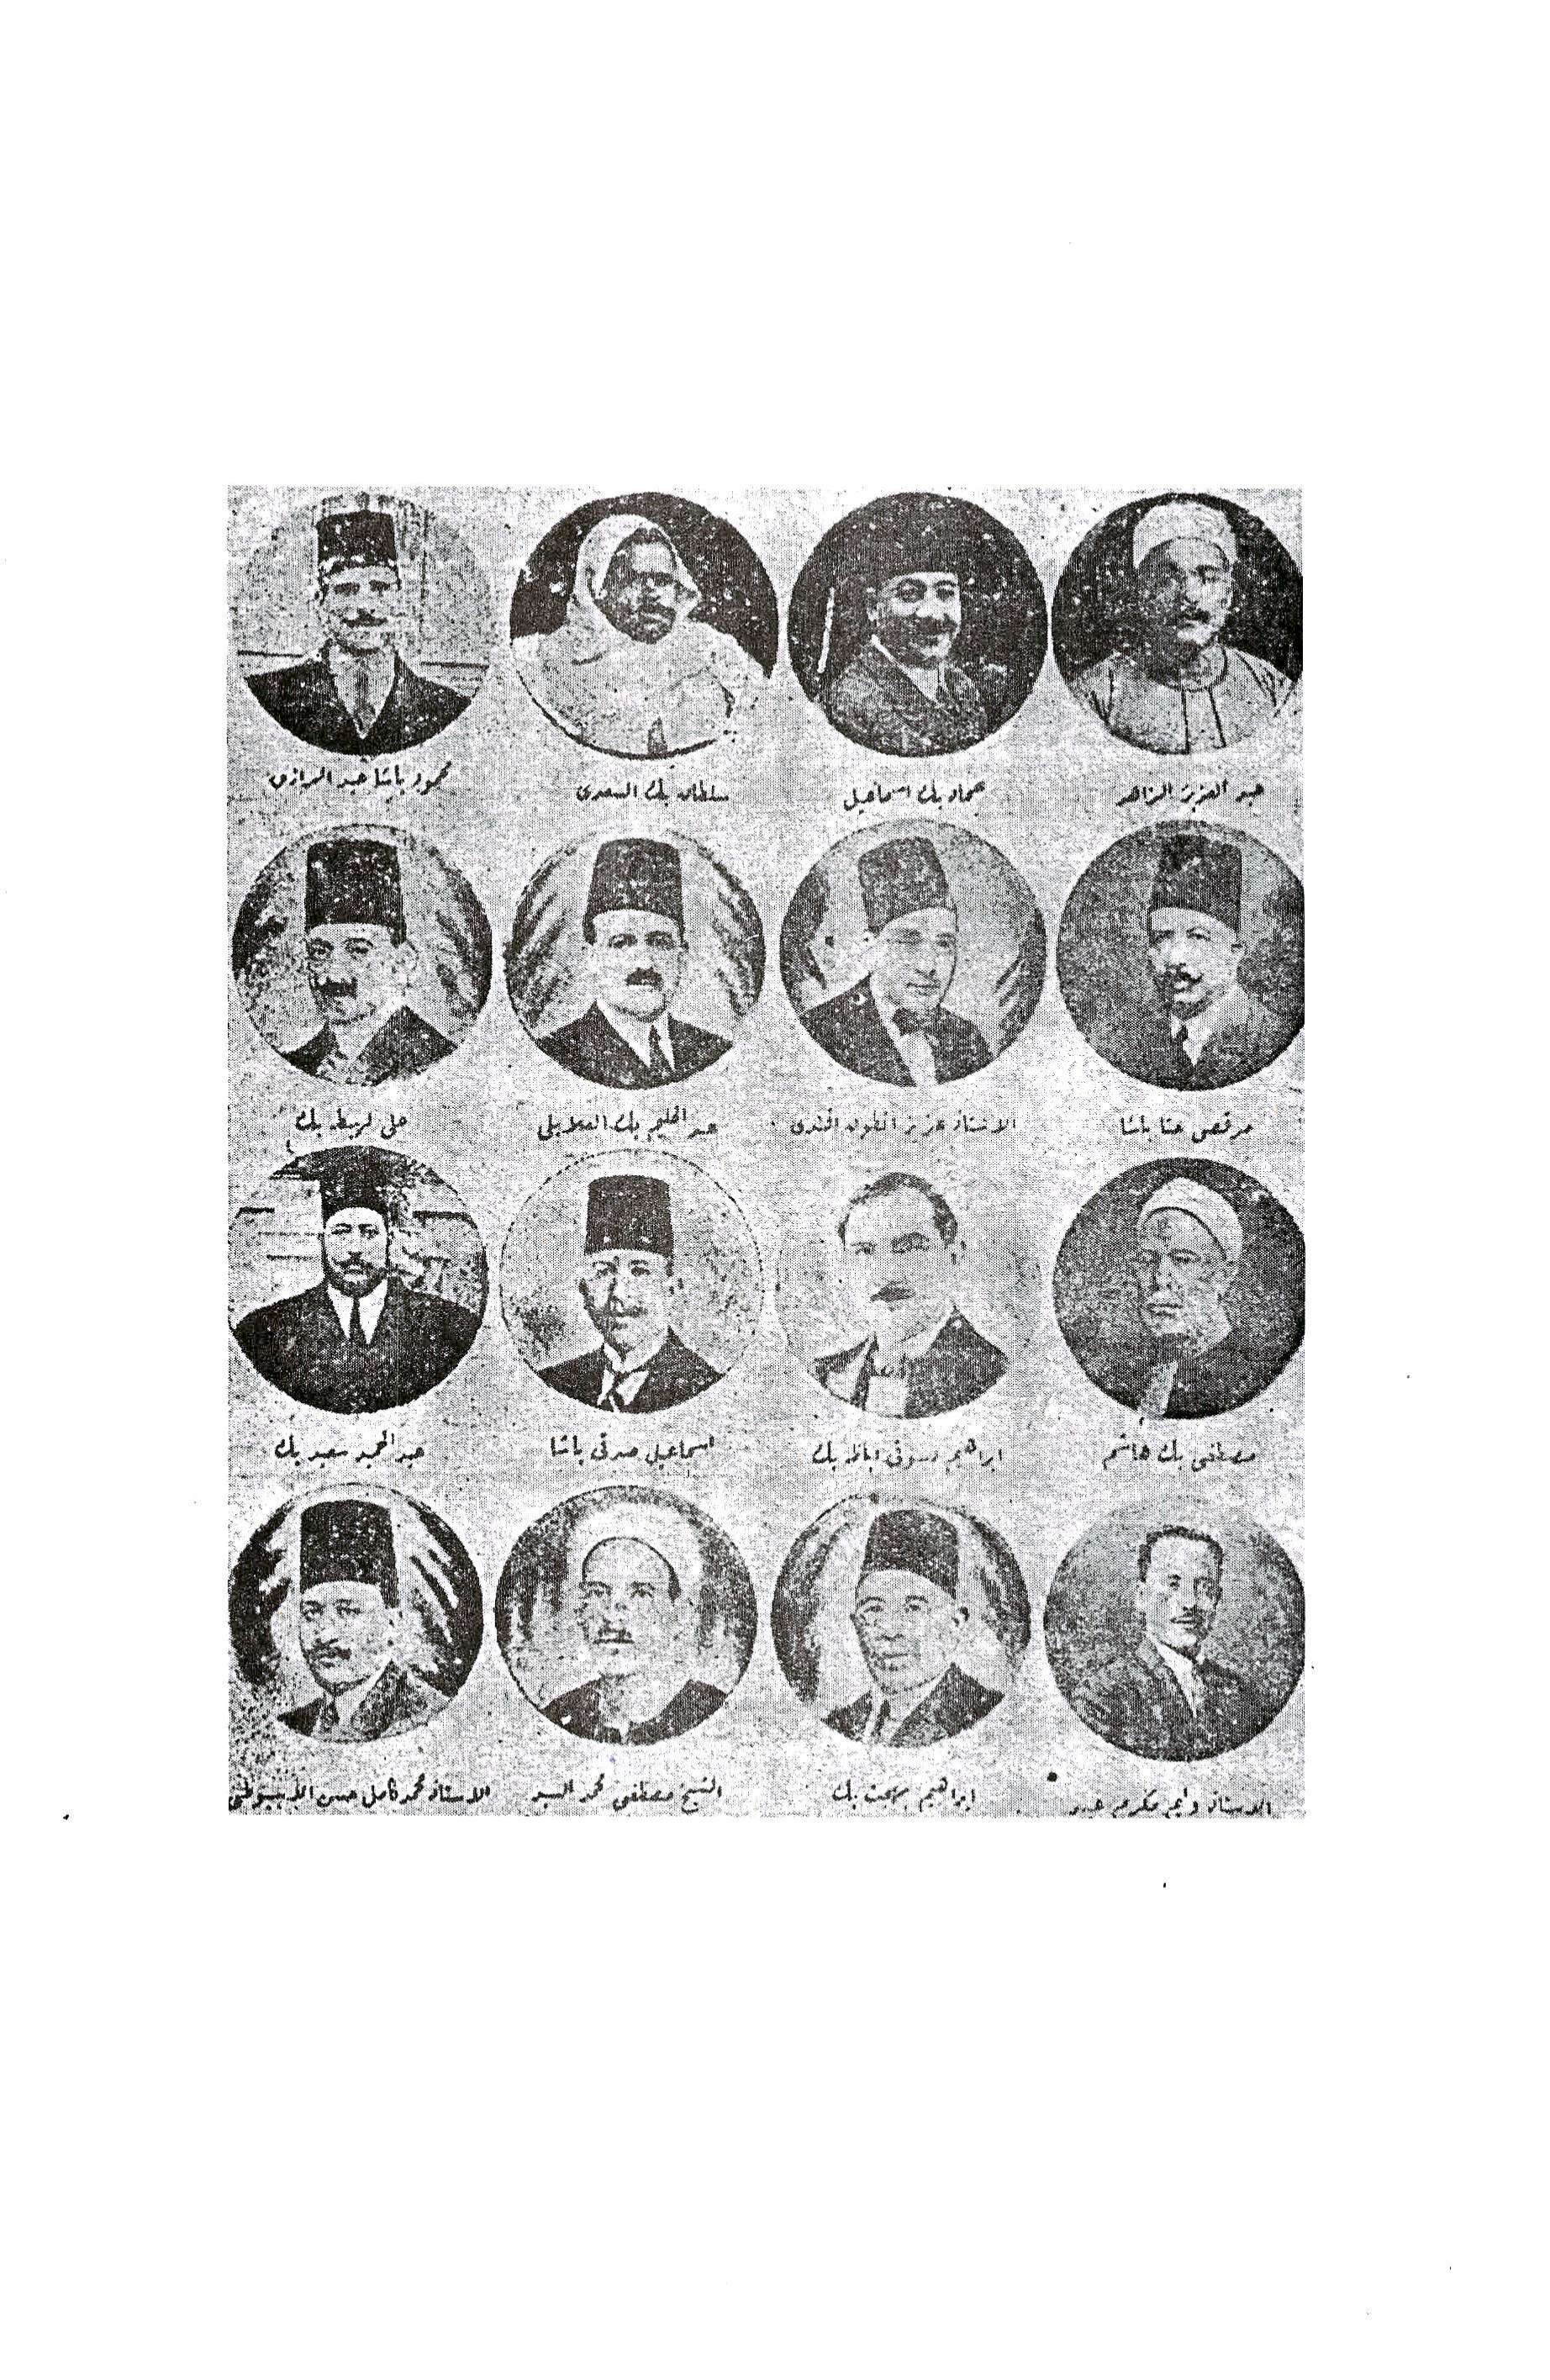 عبد العزيز الزاهر
حماد بك اسماعيل
سلطان بك السعدى
محمود باشا عبد الرازق
مرقص حنا باشا
الاستاذ عزيز انطون الجندى
عبد الحليم بك العلايلى
على بك
مصطفى بك هاشم
ابراهيم دسوقى اباظه بك
اسماعيل صدقى باشا
عبد الحميد سعيد بك
الاستاذ وليم مكرم عبيد
ابراهيم بهجت بك
الشيخ مصطفى محمد السيد
الاستاذ محمد كامل حسن